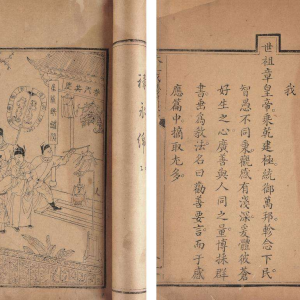 我
世祖章皇帝乘乾建極統御萬邦軫念下民
智愚不同秉觀感有淺深爰體彼蒼
好生之心廣善與人同之量博採群
書垂為敎法名曰勸善要言而于感
應篇中摘取尤多